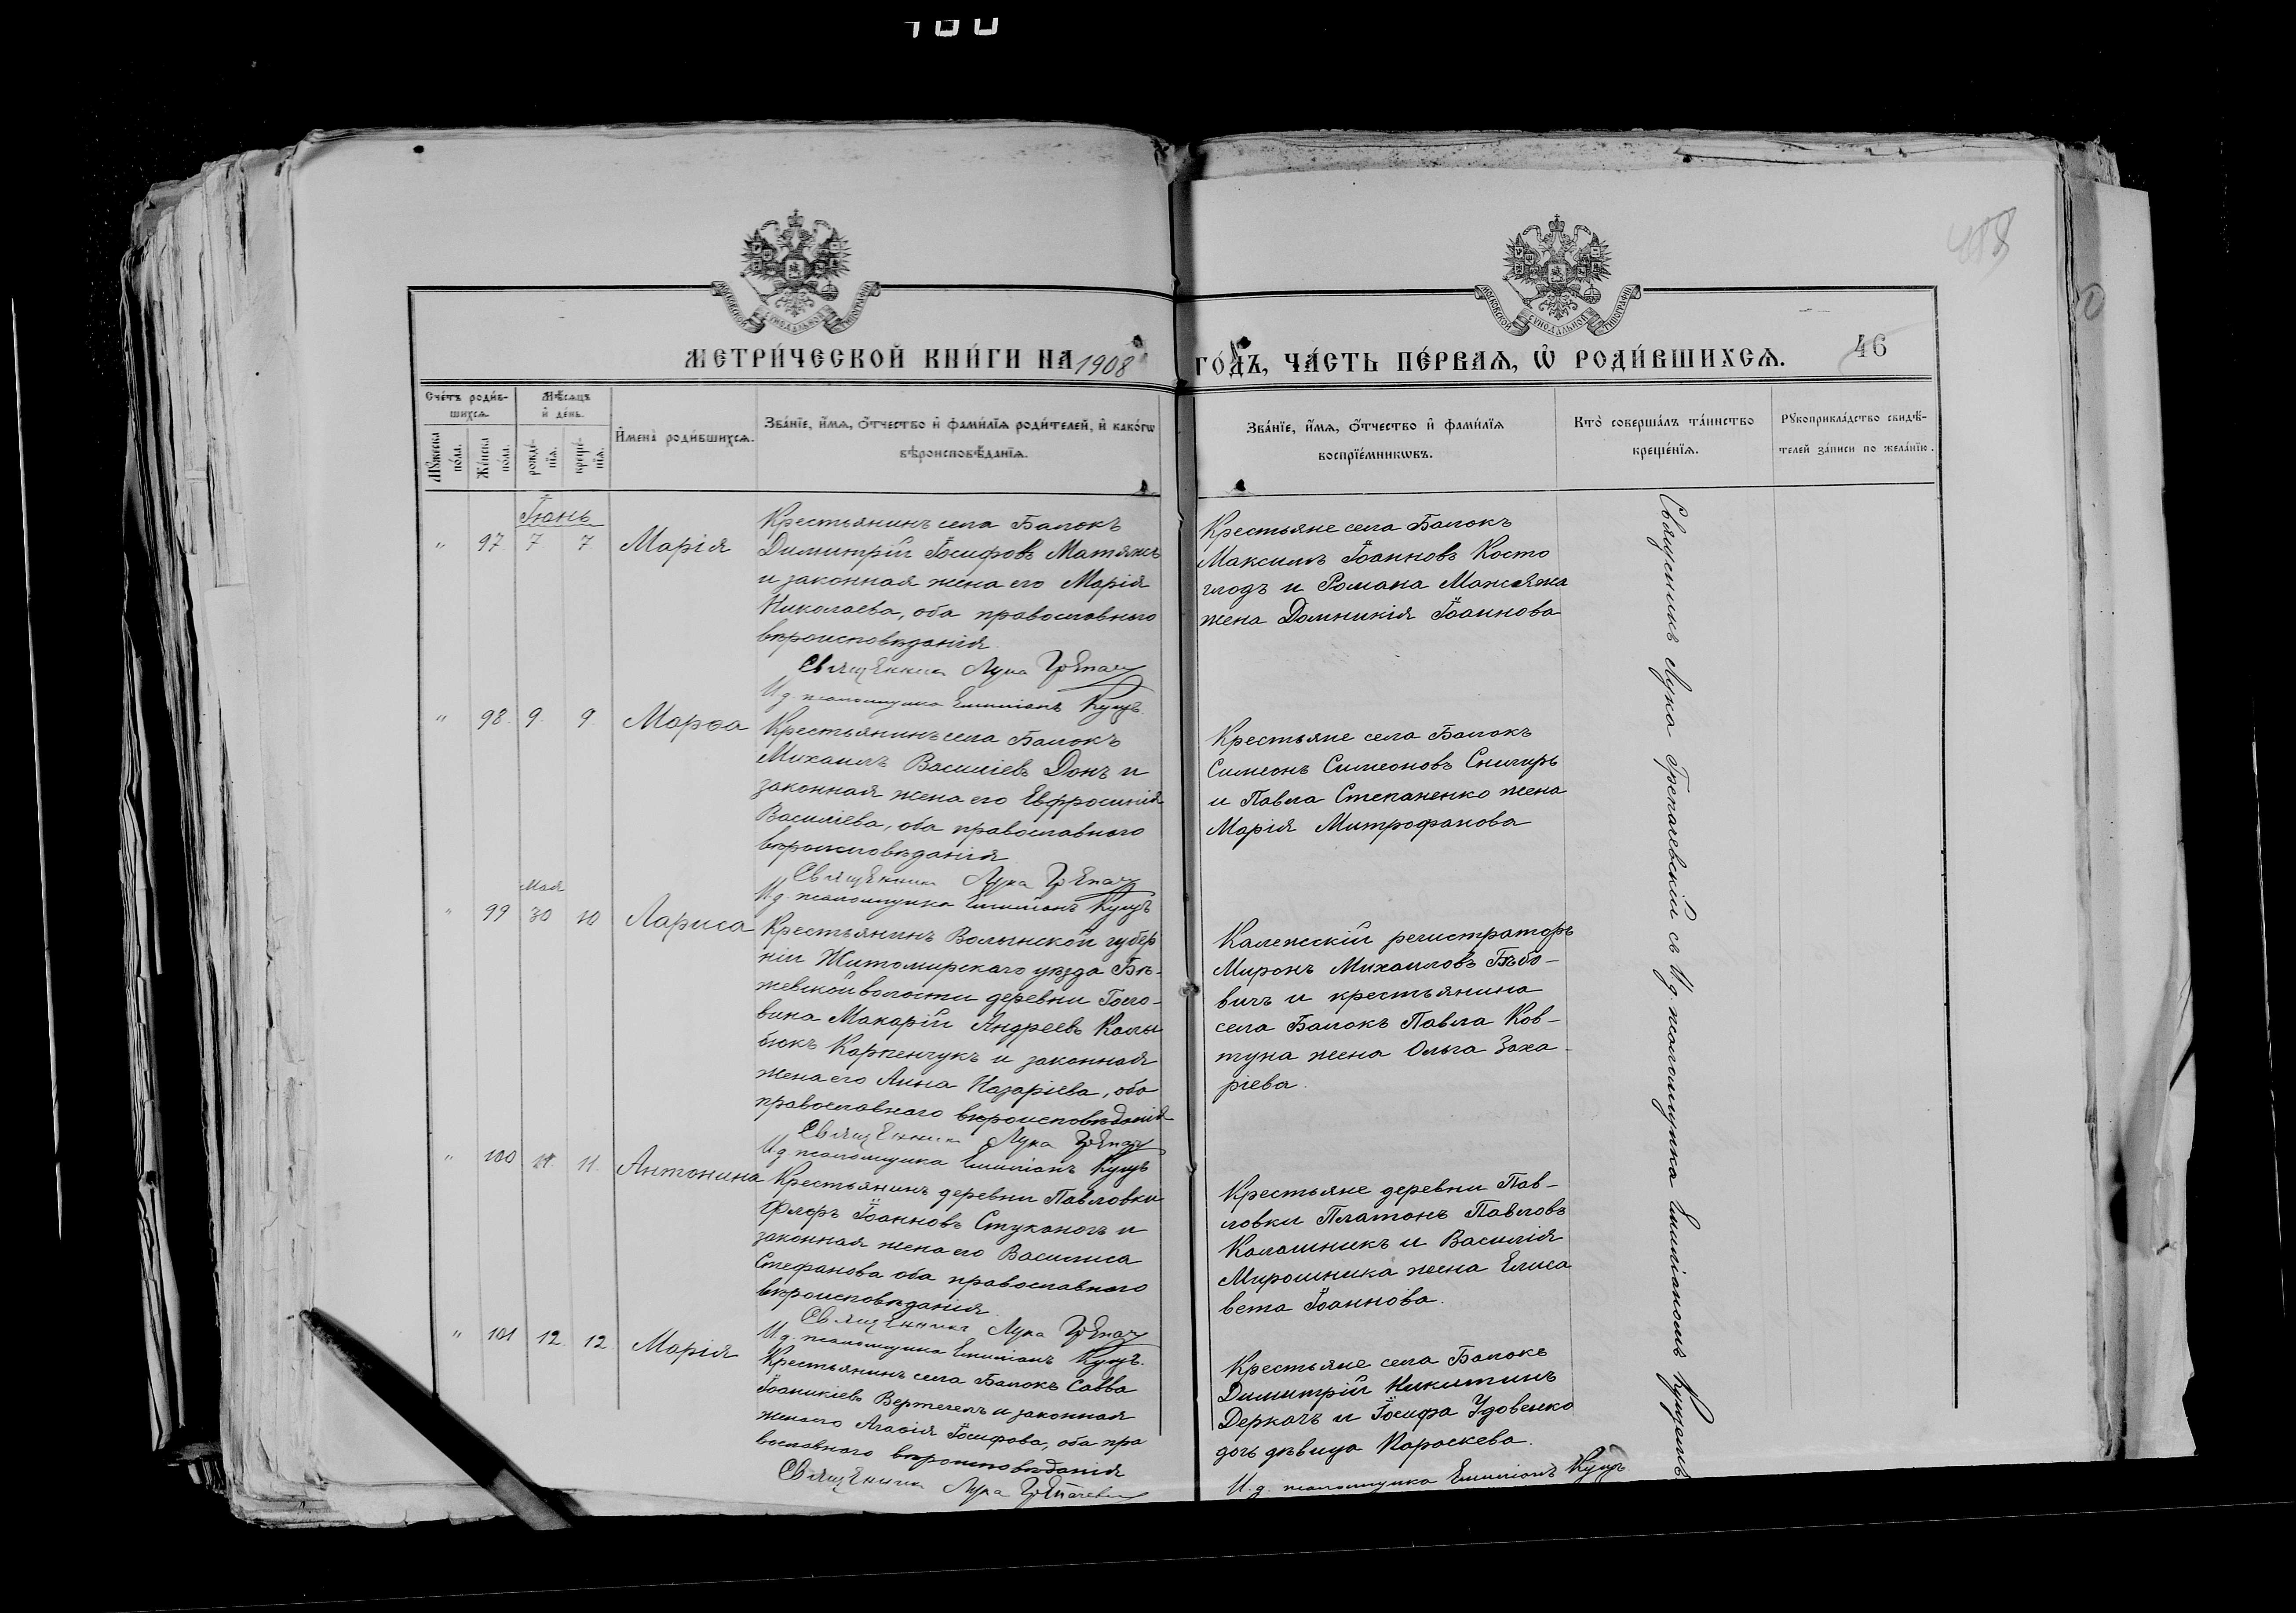 100
МОСКОВСКОЙ СѴНОДАЛЬНОЙ ТИПОГРАФІИ
МОСКОВСКОЙ СѴНОДАЛЬНОЙ ТИПОГРАФІИ
46
МЕТРИ́ЧЕСКОЙ КНИ́ГИ НА 1908 ГО́ДЪ, ЧА́СТЬ ПЕ́РВАѦ, Ѽ РОДИ́ВШИХСѦ.
Сче́тъ роди́в-
шихсѧ.
Мꙋ́жеска
по́ла.
Же́нска
по́ла.
Мѣ́сѧцъ
и҆ де́нь.
рожде́-
нїѧ.
креще́-
нїѧ.
И҆мена̀ роди́вшихсѧ.
Зва́нїе, и҆́мѧ, ѻ҆́тчество и҆ фами́лїѧ роди́телей, и҆ како́гѡ
вѣроисповѣ́данїѧ.
Зва́нїе, и҆́мѧ, ѻ҆́тчество и҆ фами́лїѧ
воспрїе́мникѡвъ.
Кто̀ соверша́лъ та́инство
креще́нїѧ.
Рꙋкоприкла́дство свидѣ́-
телей за́писи по жела́нїю.
Іюнь
" 97. 7 7 Марія
Крестьянинъ села Балокъ
Димитрій Іосифовъ Матяжъ
и законная жена его Марія
Николаева, оба православнаго
вѣроисповѣданія.
Священникъ Лука Грепач
И.д. псаломщика Емиліанъ Кущъ.
Крестьяне села Балокъ
Максимъ Іоанновъ Косто
глодъ и Романа Мансяжа
жена Домникія Іоаннова
" 98. 9. 9 Марѳа
Крестьянинъ села Балокъ
Михаилъ Василіевъ Донъ и
законная жена его Евфросинія
Василіева, оба православнаго
вѣроисповѣданія
Священникъ Лука Грепач
И.д. псаломщика Емиліанъ Кущъ
Крестьяне села Балокъ
Симеонъ Симеоновъ Снигирь
и Павла Степаненко жена
Марія Митрофанова
Мая
" 99 30 10 Лариса
Крестьянинъ Волынской губер
ніи Житомирскаго уѣзда Бѣ-
жевской волости деревни Гого-
вина Макарій Андреевъ Калы
бюкъ Карпенчукъ и законная
жена его Анна Назаріева, оба
православнаго вѣроисповѣданія
Священникъ Лука Грепач
И.д. псаломщика Емиліанъ Кущъ
Калежскій регистраторъ
Миронъ Михаиловъ Бѣбо-
вичъ и крестьянина
села Балокъ Павла Ков-
туна жена Ольга Заха-
ріева.
" 100 11. 11. Антонина
Крестьянинъ деревни Павловки
Флоръ Іоанновъ Стуканогъ и
законная жена его Василиса
Стефанова оба православнаго
вѣроисповѣданія
Священникъ Лука Грепач
И.д. псаломщика Емиліанъ Кущъ.
Крестьяне деревни Пав-
ловки Платонъ Павловъ
Калашникъ и Василія
Мирошника жена Елиса
вета Іоаннова.
" 101 12. 12. Марія
Крестьянинъ села Балокъ Савва
Іоаникіевъ Вертегелъ и законная
жена его Агаѳія Іосифова, оба пра
вославнаго вѣроисповѣданія
Священникъ Лука Грепачевск
Крестьяне села Балокъ
Димитрій Никитинъ
Деркачъ и Іосифа Удовенко
дочь дѣвица Параскева.
И.д. псаломщика Емиліанъ Кущъ
Священникъ Лука Грепачевскій съ И.д. псаломщика Емиліаномъ Кущемъ